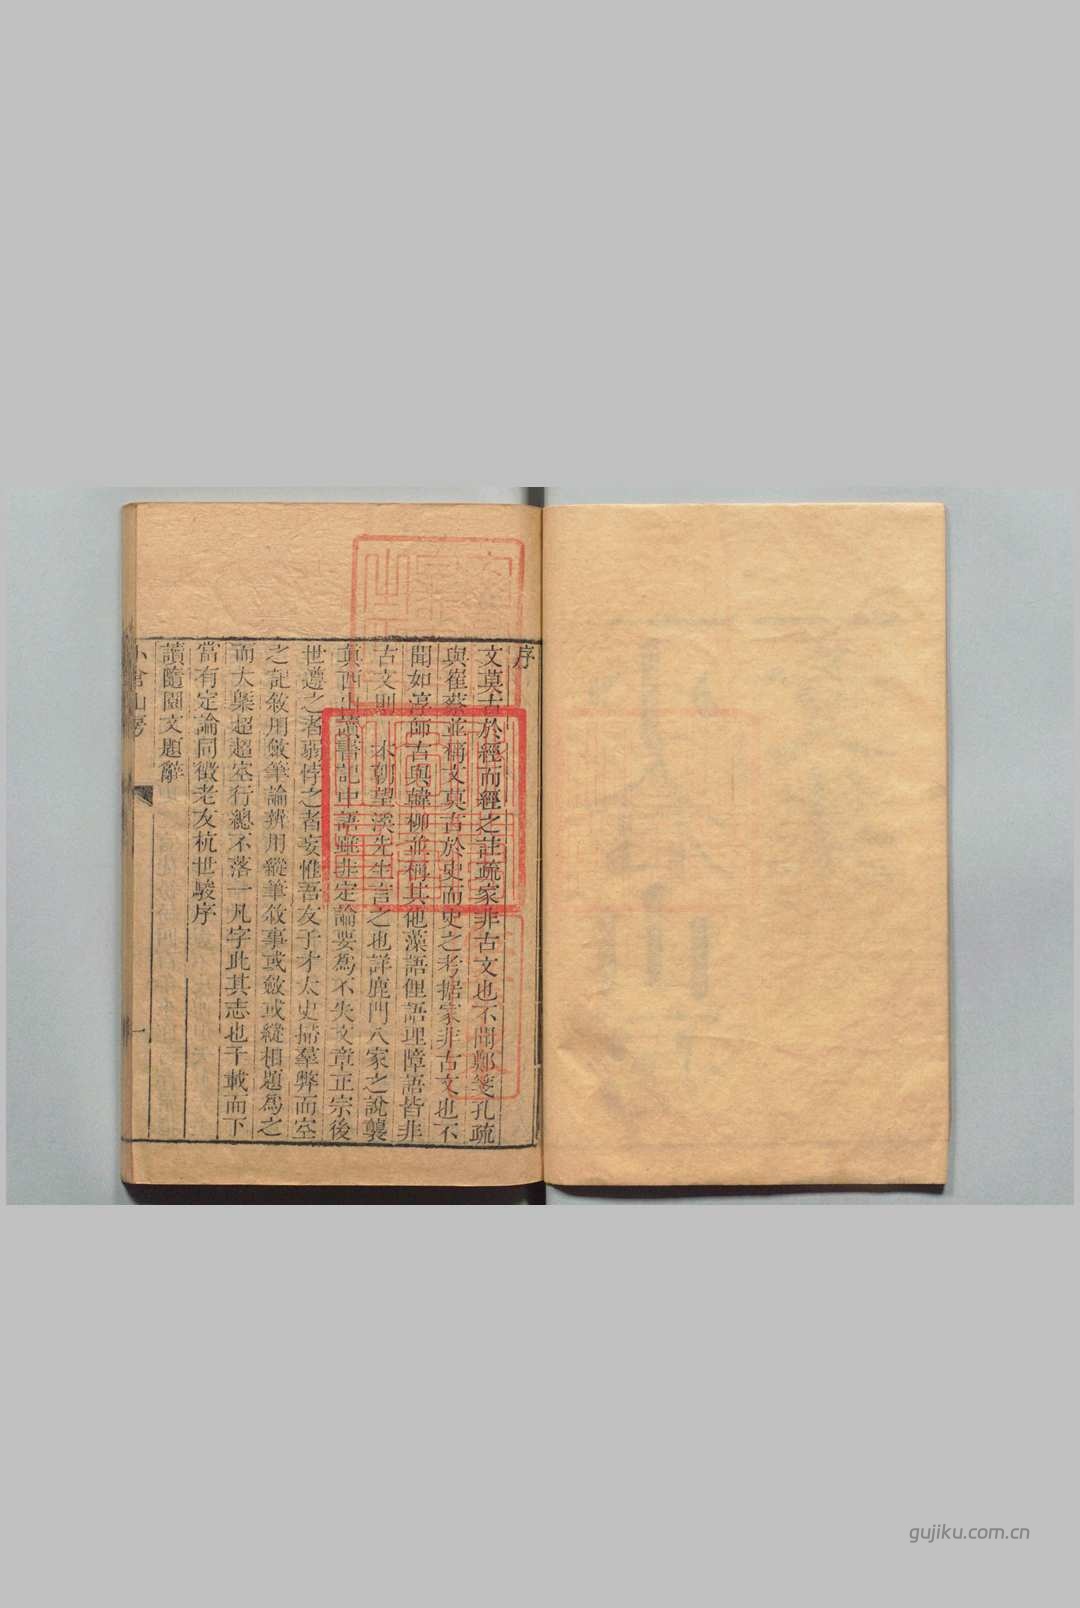 序
文莫古於經而經之註疏家非古文也不聞鄭箋孔疏
與崔蔡並稱文莫古於史而史之考据家非古文也不
聞如淳師古與韓柳並稱其他藻語俚語理障語皆非
古文則 本朝望溪先生言之也詳鹿門八家之說襲
真西山讀書記中語雖非定論要為不失文章正宗後
世遵之者弱悖之者妄惟吾友子才太史掃羣弊而空
之記敘用斂筆論辨用縱筆敘事或斂或縱相題為之
而大槩超超空行總不落一凡字此其志也千載而下
當有定論同徵老友杭世駿序
讀隨園文題辭
小倉山房
一
gujiku.com.cn